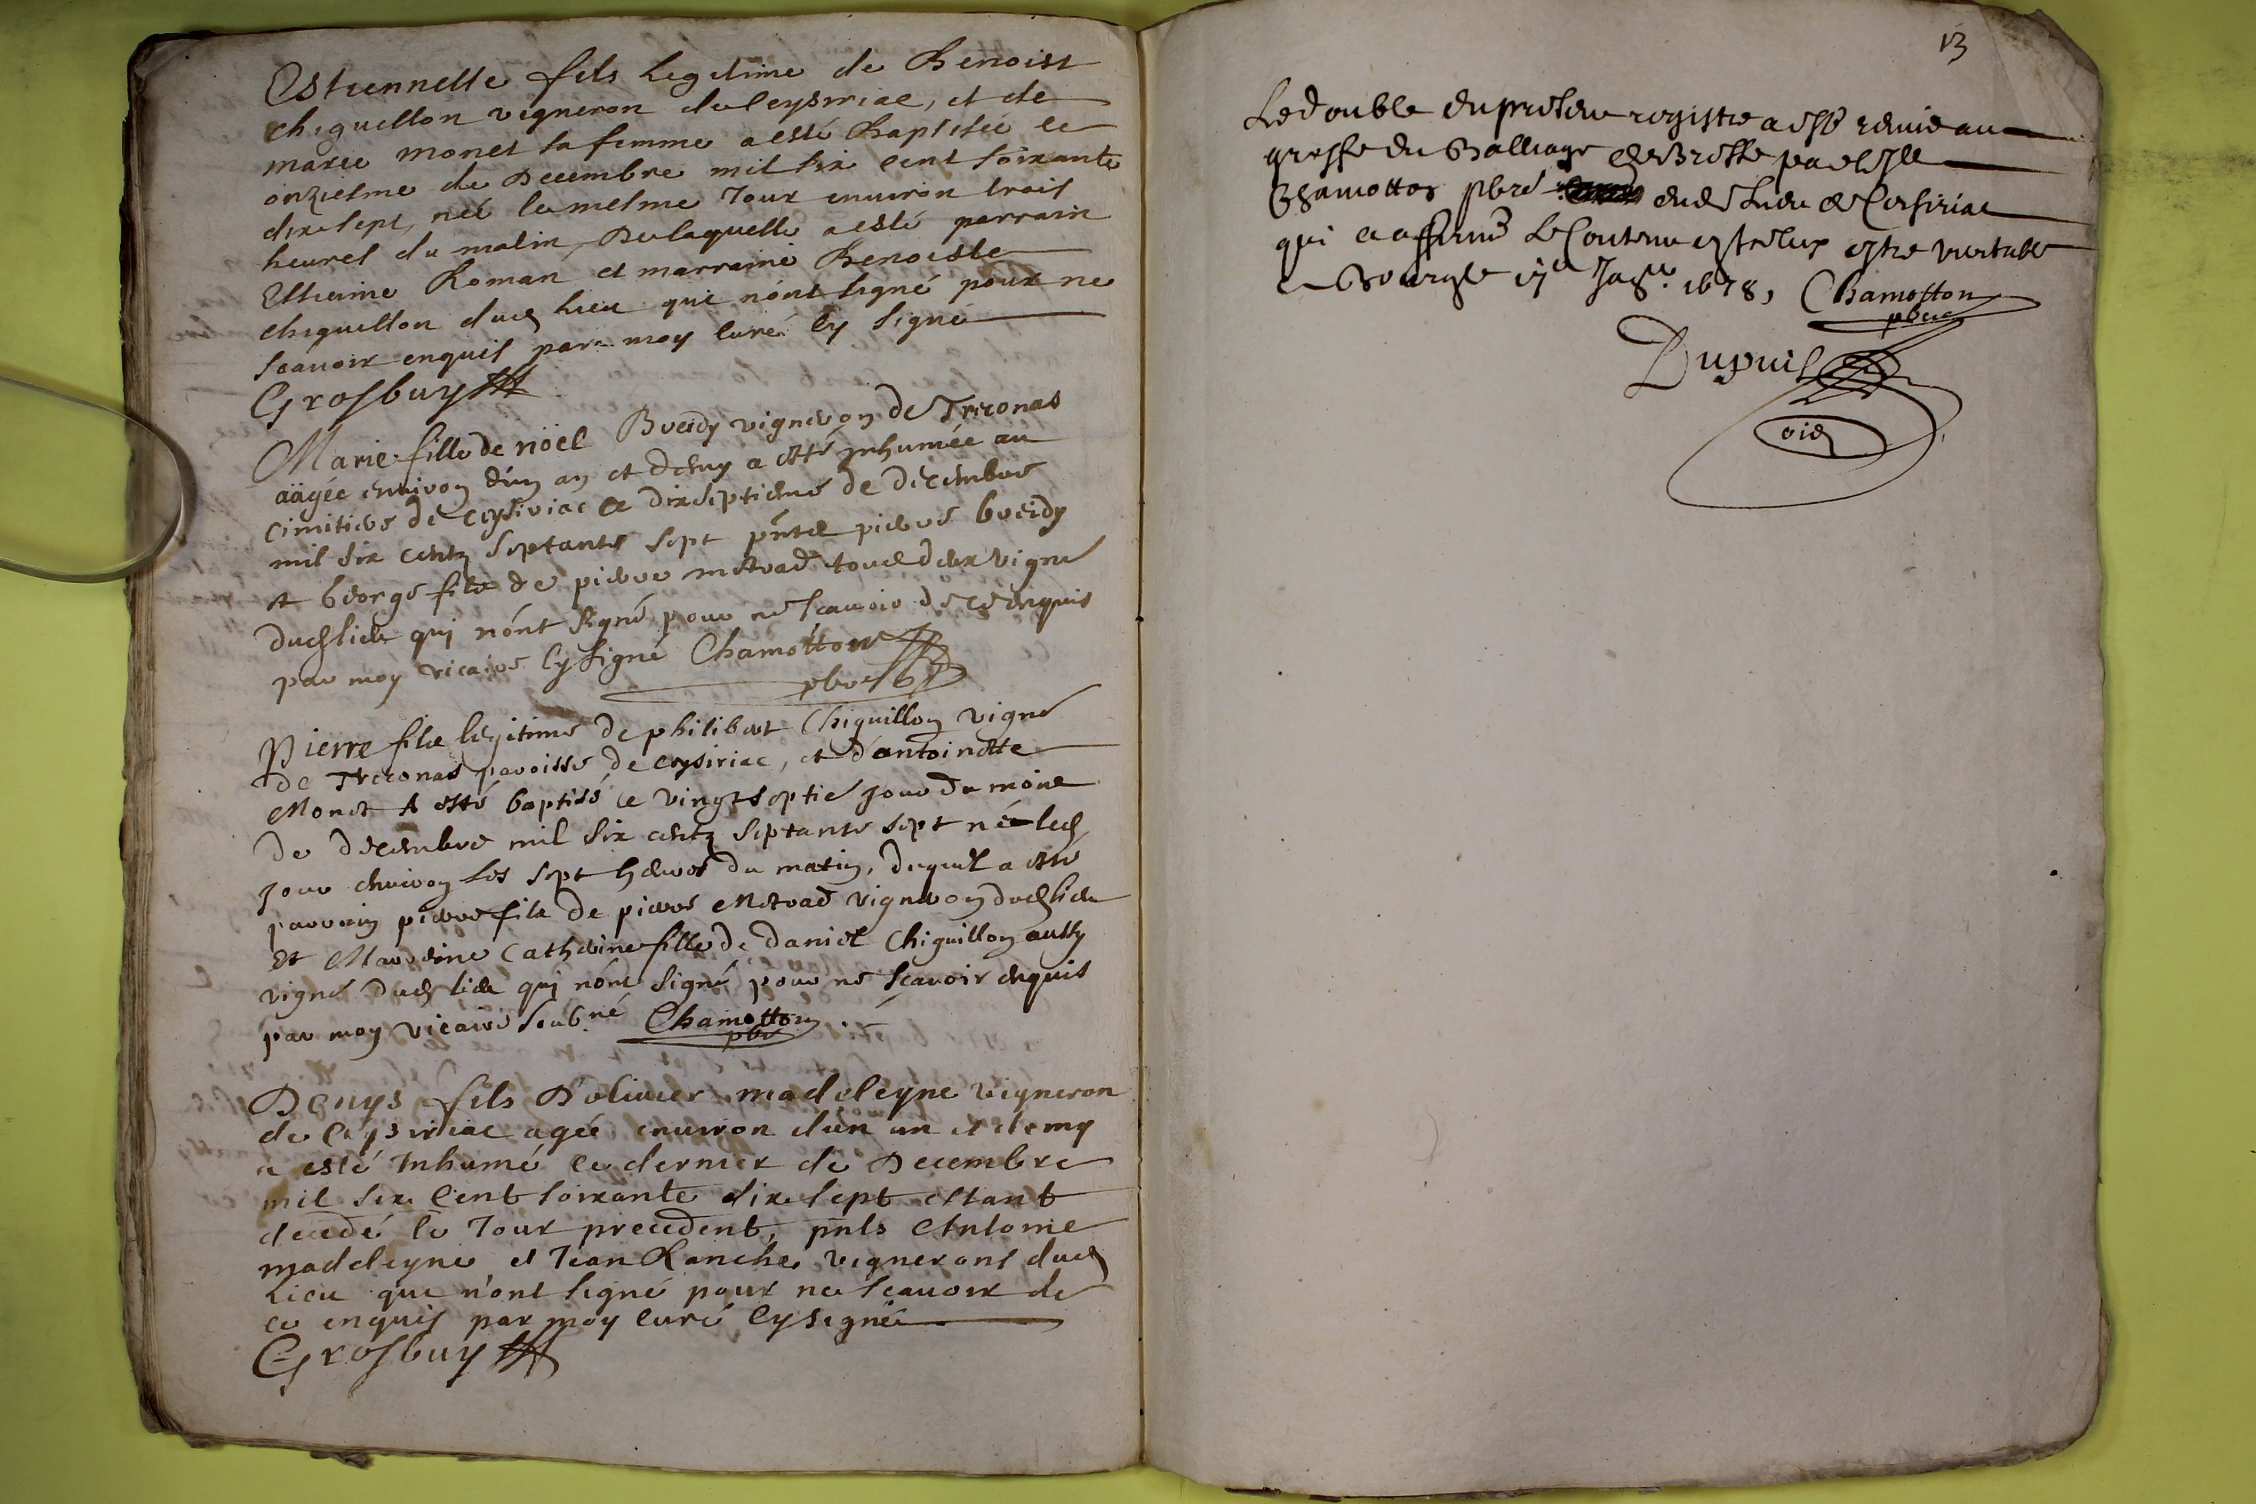 Estiennette fils legitime de Benoist
chiguillon vigneron de ceysiriac, et de
marie monet sa femme a esté baptisée le
onziesme de Decembre mil six cent soixante
dix sept, née le mesme Jour environ trois
heures du matin, De laquelle a esté parrain
Estienne Roman et marraine Benoiste
chiguillon dud lieu qui n'ont signé pour ne
scavoir enquis par moy curé cy signé
Grosbuy
Marie fille de nöel Breidy vigneron de Treconas
aägée environ d'un an et demy a esté inhumée au
cimitiere de ceysiriac le dixseptieme de decembre
mil six centz septante sept pntz pierre breidy
et George filz de pierre metrad tous deux vignr
dud lieu qui n'ont signé pour ne scavoir de ce enquis
par moy vicaire cy signé Chamotton
pbre
Pierre filz legitime de philibert Chiguillon vignr
de Treconas paroisse de ceysiriac, et d'antoinette
Monet A esté baptisé ce vingt septie jour du moins
de decembre mil six centz septante sept né led
jour environ les sept heures du matin, duquel a esté
parrain pierre filz de pierre Metrad vigneron dud lieu
et Marreine Catherine fille de daniel Chiguillon aussy
vignr dud lieu qui n'ont signé pour ne scavoir enquis
par moy vicaire soubné Chamotton
pbr
Denys fils D'olivier madeleyne vigneron
de ceysiriac agée environ d'un an et demy
a esté Inhumé le dernier de Decembre
mil six cent soixante dix sept estant
decedé le Jour precedent, pnts Antoine
madeleyne et Jean Ranche vignerons dud
lieu qui n'ont signé pour ne scavoir de
ce enquis par moy curé cy signé
Grosbuy
13
Le double du present registre a esté remis au
greffe du Balliage de Bresse par
Chamotton pbre dud lieu de Ceisiriac
qui a affirmé le Contenu estre veritable
a Bourg le 1678, Chamotton
pbre
Dupuis